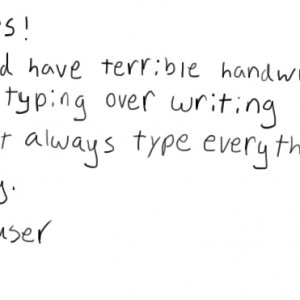 s!
d have terrible handw
typing over writing
t always type everyth
y.
user